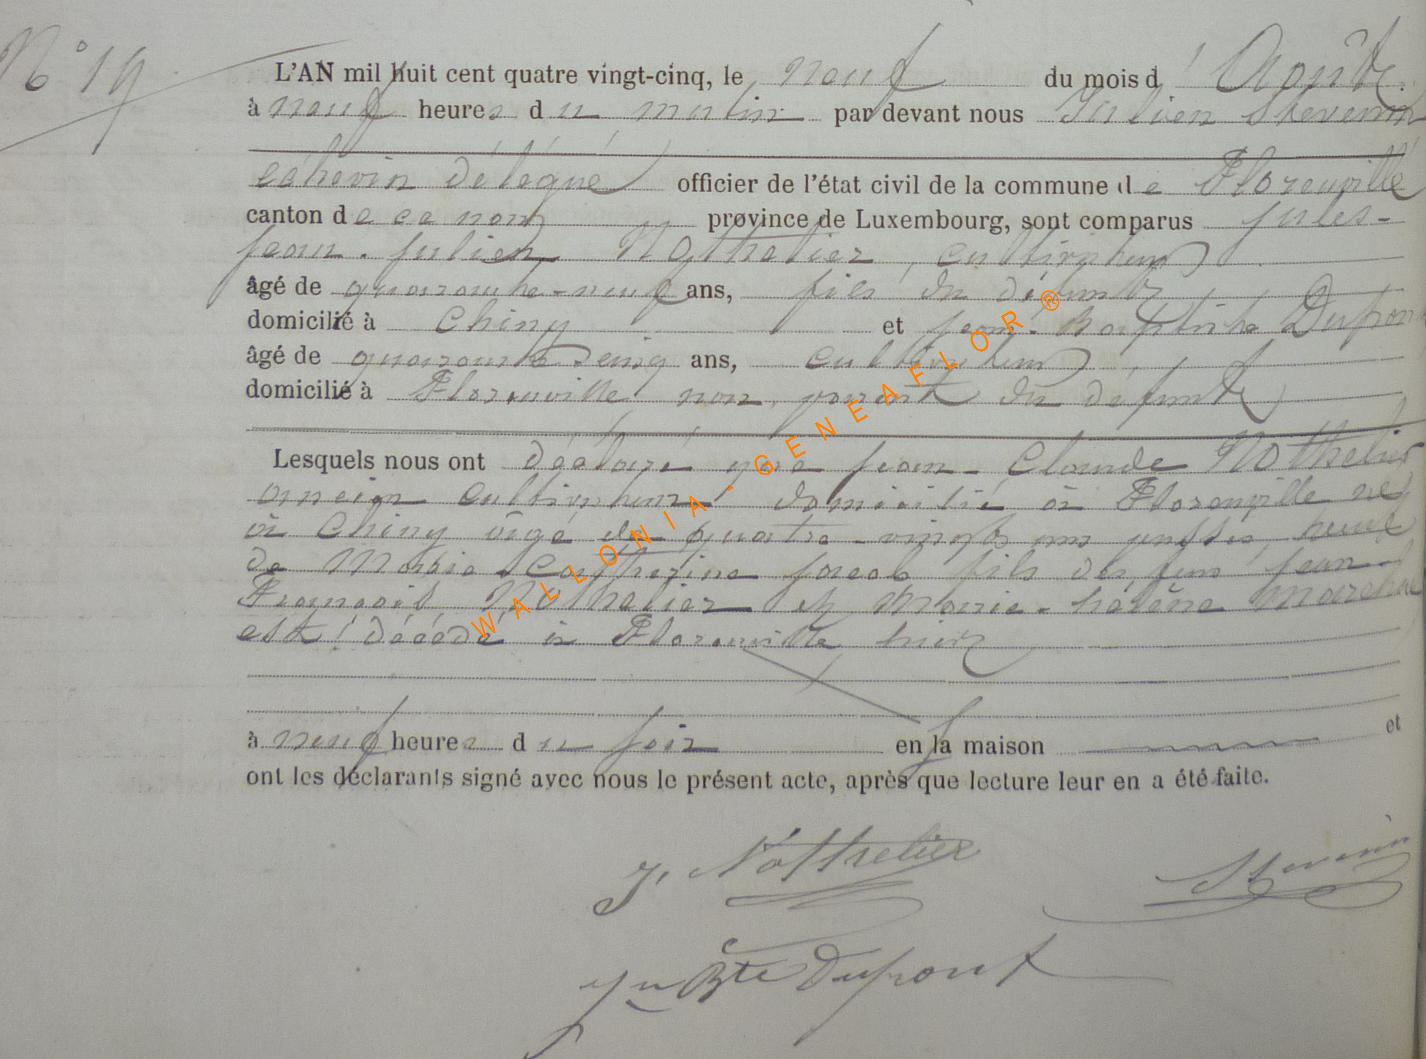 N° 19
L'AN mil huit cent quatre vingt-cinq, le neuf du mois d'Août
à neuf heures du matin par devant nous Julien Stevenin
échevin délégué officier de l'état civil de la commune de Florenville
canton de ce nom province de Luxembourg, sont comparus Jules-
Jean-Julien Nothelier, cultivateur
âgé de quarante-neuf ans, fils du défunt
domicilié à Chiny et Jean-Baptiste Dupont
âgé de quarante cinq ans, cultivateur
domicilié à Florenville non parent du défunt
Lesquels nous ont déclaré que Jean-Claude Nothelier
ancien cultivateur domicilié à Florenville né
à Chiny âgé de quatre-vingts ans passés, veuf
de Marie-Catherine fils de feu Jean-
François Nothelier et Marie-hélène
est décédé à Florenville hier
à neuf heures du soir en la maison et
ont les déclarants signé avec nous le présent acte, après que lecture leur en a été faite.
J. Nothelier
Stevenin
Jn Bte Dupont
WALLONIA - GENEAFLOR ®